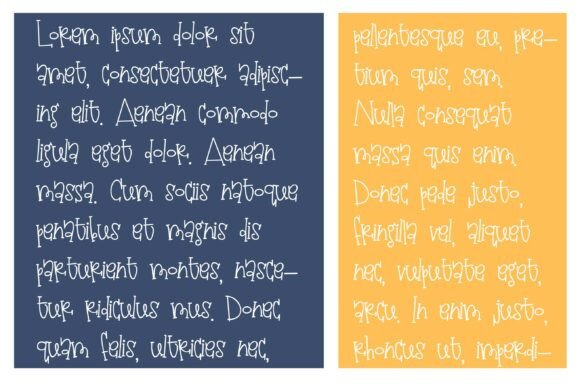 Lorem ipsum dolor sit
amet, consectetuer adipisc-
ing elit. Aenean commodo
ligula eget dolor. Aenean
massa. Cum sociis natoque
penatibus et magnis dis
parturient montes, nasce-
tur ridiculus mus. Donec
quam felis, ultricies nec,
pellentesque eu, pre-
tium quis, sem.
Nulla consequat
massa quis enim.
Donec pede justo,
fringilla vel, aliquet
nec, vulputate eget,
arcu. In enim justo,
rhoncus ut, imperdi-